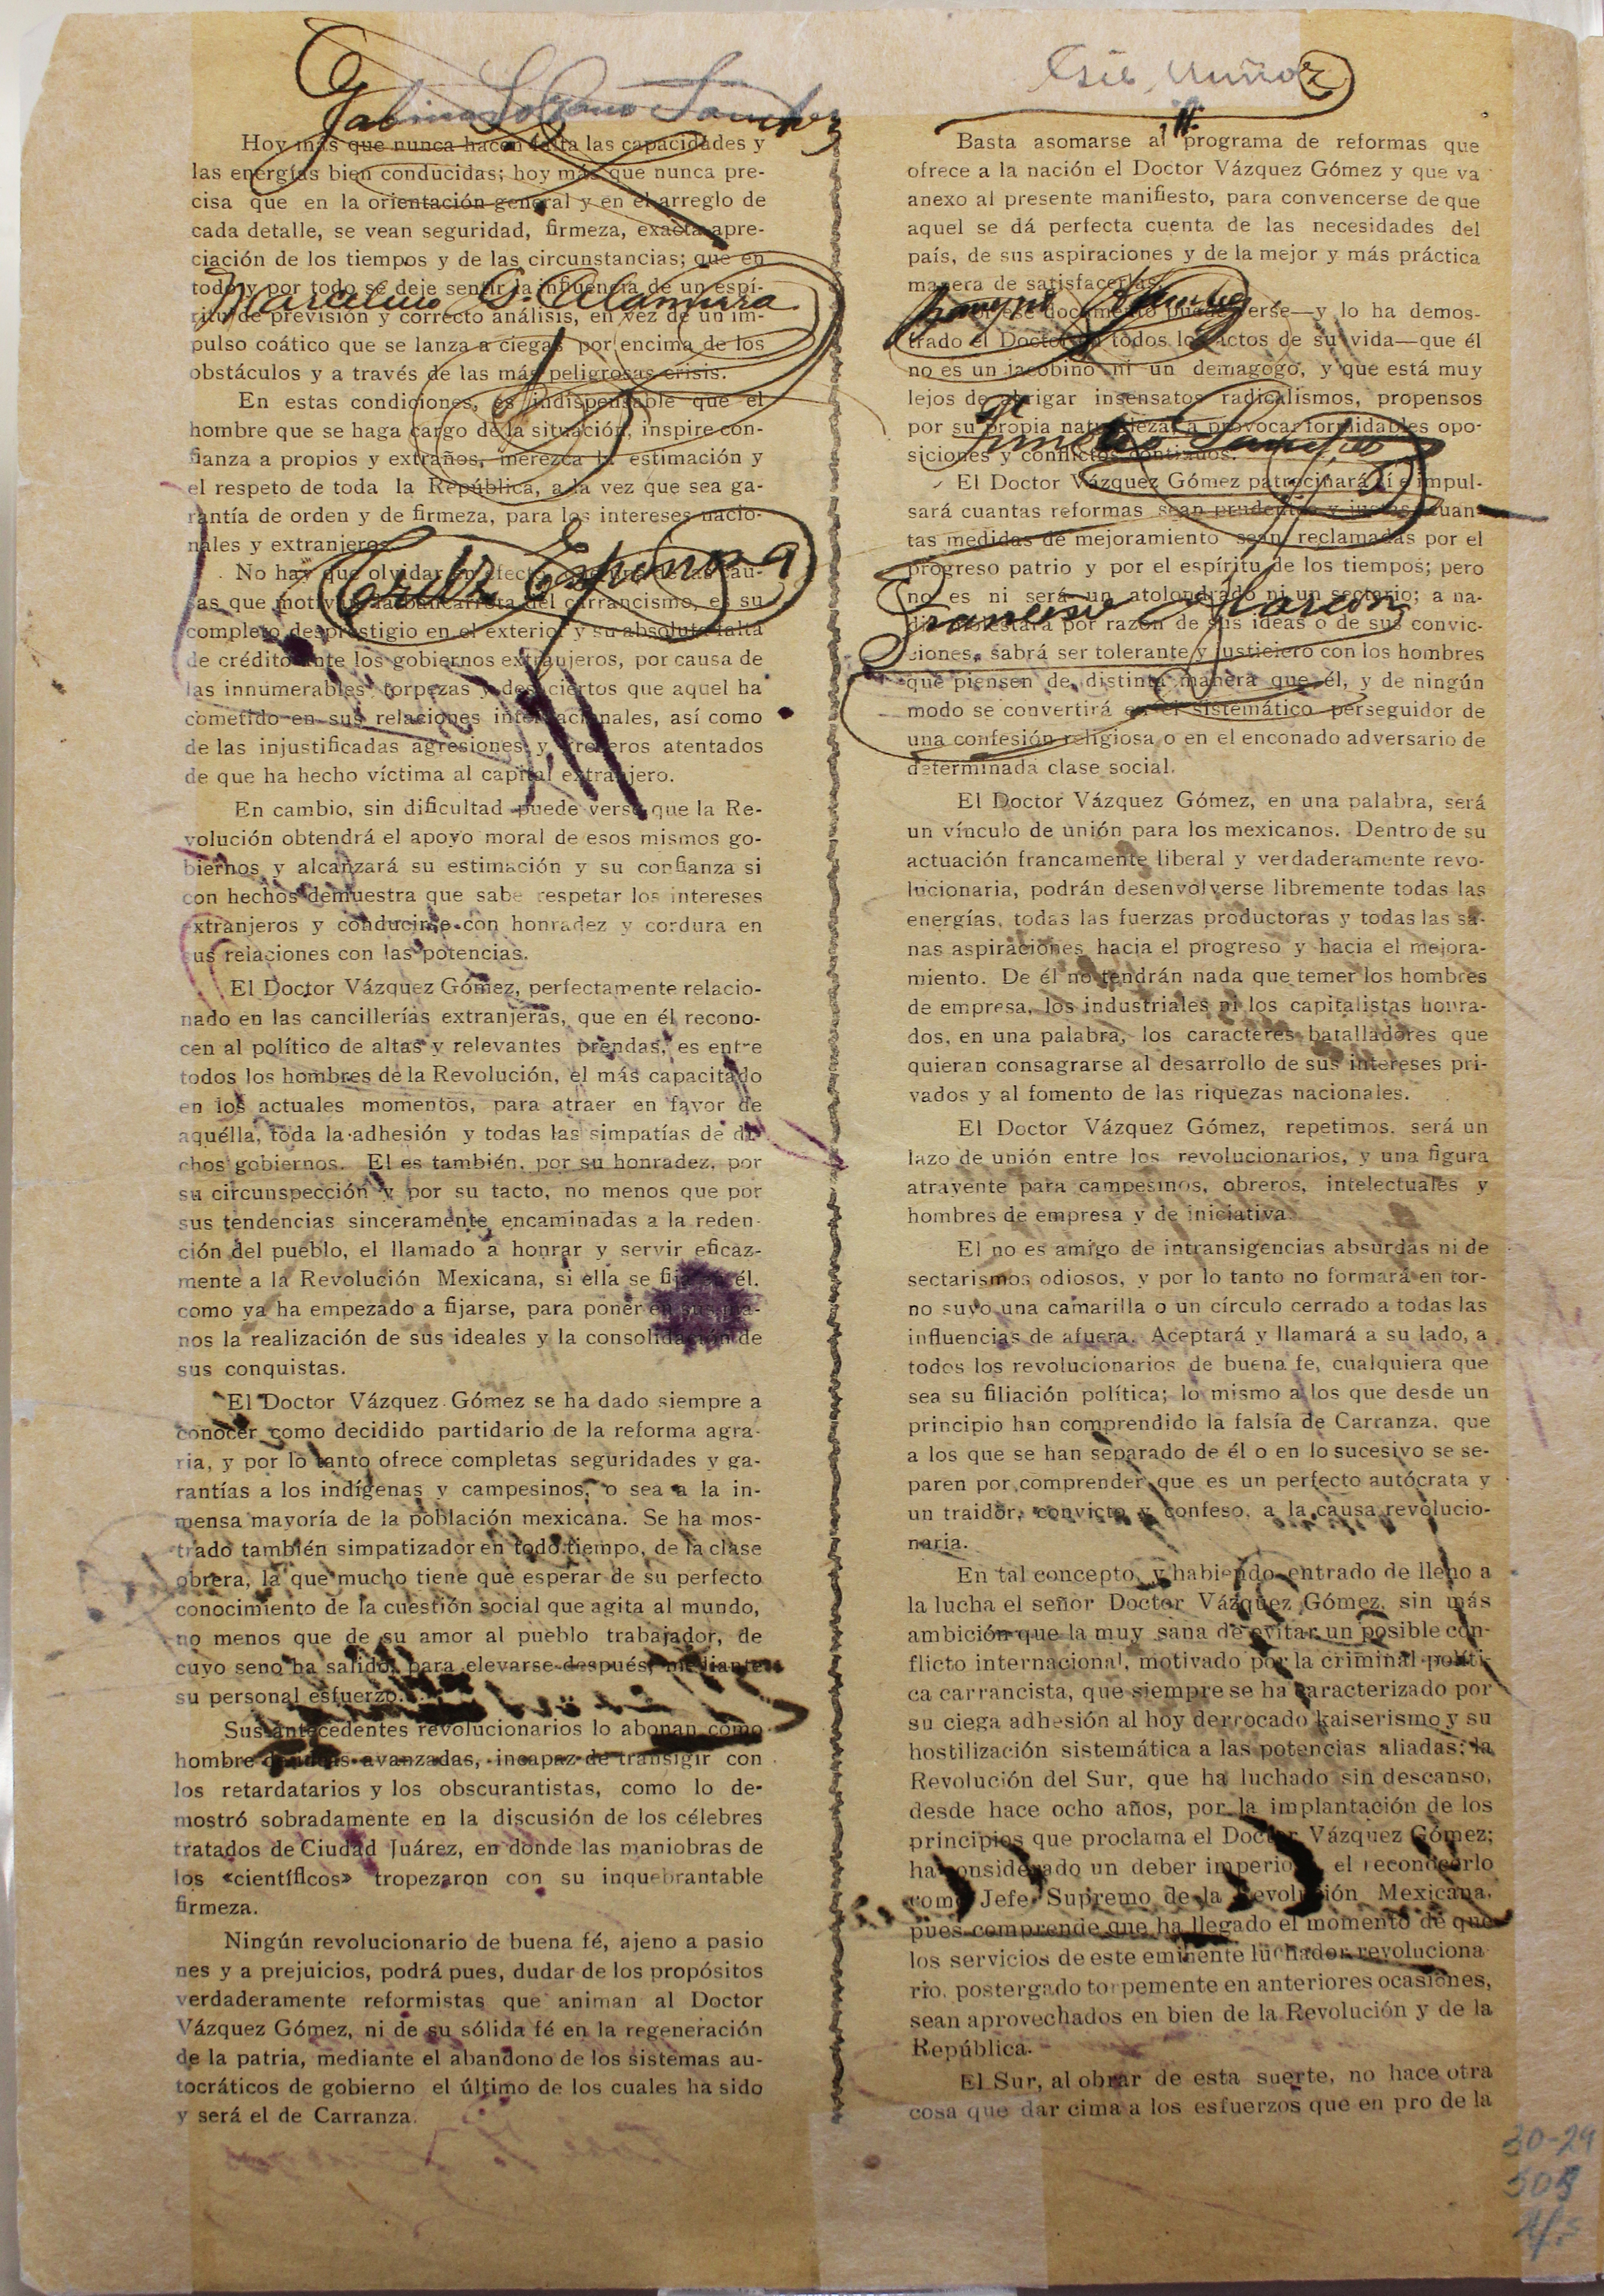 Hoy más que nunca hacen falta las capacidades y
las energías bien conducidas; hoy más que nunca pre-
cisa que en la orientación general y en el arreglo de
cada detalle, se vean seguridad, firmeza, exacta apre-
ciación de los tiempos y de las circunstancias; que en
todo y por todo se deje sentir la influencia de un espí-
ritu de previsión y correcto análisis, en vez de un im-
pulso coático que se lanza a ciegas por encima de los
obstáculos y a través de las más peligrosas crisis.
En estas condiciones, es indispensable que el
hombre que se haga cargo de la situación, inspire con-
fianza a propios y extraños, merezca la estimación y
el respeto de toda la República, a la vez que sea ga-
rantía de orden y de firmeza, para los intereses nacio-
nales y extranjeros.
No hay que olvidar en efecto, que una de las cau-
sas que motivan la bancarrota del carrancismo, es su
completo desprestigio en el exterior y su absoluta falta
de crédito ante los gobiernos extranjeros, por causa de
las innumerables torpezas y desaciertos que aquel ha
cometido en sus relaciones internacionales, así como
de las injustificadas agresiones y groseros atentados
de que ha hecho víctima al capital extranjero.
En cambio, sin dificultad puede verse que la Re-
volución obtendrá el apoyo moral de esos mismos go-
biernos y alcanzará su estimación y su confianza si
con hechos demuestra que sabe respetar los intereses
extranjeros y conducirse con honradez y cordura en
sus relaciones con las potencias.
El Doctor Vázquez Gómez, perfectamente relacio-
nado en las cancillerías extranjeras, que en él recono-
cen al político de altas y relevantes prendas, es entre
todos los hombres de la Revolución, el más capacitado
en los actuales momentos, para atraer en favor de
aquélla, toda la adhesión y todas las simpatías de di-
chos gobiernos. El es también, por su honradez, por
su circunspección y por su tacto, no menos que por
sus tendencias sinceramente encaminadas a la reden-
ción del pueblo, el llamado a honrar y servir eficaz-
mente a la Revolución Mexicana, si ella se fija en él.
como ya ha empezado a fijarse, para poner en sus ma-
nos la realización de sus ideales y la consolidación de
sus conquistas.
El Doctor Vázquez Gómez se ha dado siempre a
conocer como decidido partidario de la reforma agra-
ria, y por lo tanto ofrece completas seguridades y ga-
rantías a los indígenas y campesinos, o sea a la in-
mensa mayoría de la población mexicana. Se ha mos-
trado también simpatizador en todo tiempo, de la clase
obrera, la que mucho tiene que esperar de su perfecto
conocimiento de la cuestión social que agita al mundo,
no menos que de su amor al pueblo trabajador, de
cuyo seno ha salido, para elevarse después, mediante
su personal esfuerzo.
Sus antecedentes revolucionarios lo abonan como
hombre de ideas avanzadas, incapaz de transigir con
los retardatarios y los obscurantistas, como lo de-
mostró sobradamente en la discusión de los célebres
tratados de Ciudad Juárez, en donde las maniobras de
los «científicos» tropezaron con su inquebrantable
firmeza.
Ningún revolucionario de buena fé, ajeno a pasio
nes y a prejuicios, podrá pues, dudar de los propósitos
verdaderamente reformistas que animan al Doctor
Vázquez Gómez, ni de su sólida fé en la regeneración
de la patria, mediante el abandono de los sistemas au-
tocráticos de gobierno el último de los cuales ha sido
y será el de Carranza.
Marcelino G. Alamirra
Cruz Espinosa
Muñoz
Basta asomarse al programa de reformas que
ofrece a la nación el Doctor Vázquez Gómez y que va
anexo al presente manifiesto, para convencerse de que
aquel se dá perfecta cuenta de las necesidades del
país, de sus aspiraciones y de la mejor y más práctica
manera de satisfacerlas.
documento puede verse—y lo ha demos-
trado el Doctor en todos los actos de su vida—que él
no es un jacobino ni un demagogo, y que está muy
lejos de abrigar insensatos radicalismos, propensos
por su propia naturaleza a provocar formidables opo-
siciones y conflictos continuos.
El Doctor Vázquez Gómez patrocinará sí e impul-
sará cuantas reformas sean prudentes y justas, cuan-
tas medidas de mejoramiento sean reclamadas por el
progreso patrio y por el espíritu de los tiempos; pero
no es ni será un atolondrado ni un sectario; a na-
die molestará por razón de sus ideas o de sus convic-
ciones, sabrá ser tolerante y justiciero con los hombres
que piensen de distinta manera que él, y de ningún
modo se convertirá en el sistemático perseguidor de
una confesión religiosa o en el enconado adversario de
determinada clase social.
El Doctor Vázquez Gómez, en una palabra, será
un vínculo de unión para los mexicanos. Dentro de su
actuación francamente liberal y verdaderamente revo-
lucionaria, podrán desenvolverse libremente todas las
energías, todas las fuerzas productoras y todas las sa-
nas aspiraciones hacia el progreso y hacia el mejora-
miento. De él no tendrán nada que temer los hombres
de empresa, los industriales ni los capitalistas honra-
dos, en una palabra, los caracteres batalladores que
quieran consagrarse al desarrollo de sus intereses pri-
vados y al fomento de las riquezas nacionales.
El Doctor Vázquez Gómez, repetimos, será un
lazo de unión entre los revolucionarios, y una figura
atrayente para campesinos, obreros, intelectuales y
hombres de empresa y de iniciativa.
El no es amigo de intransigencias absurdas ni de
sectarismos odiosos, y por lo tanto no formará en tor-
no suyo una camarilla o un círculo cerrado a todas las
influencias de afuera. Aceptará y llamará a su lado, a
todos los revolucionarios de buena fe, cualquiera que
sea su filiación política; lo mismo a los que desde un
principio han comprendido la falsía de Carranza, que
a los que se han separado de él o en lo sucesivo se se-
paren por comprender que es un perfecto autócrata y
un traidor, convicto y confeso, a la causa revolucio-
naria.
En tal concepto, y habiendo entrado de lleno a
la lucha el señor Doctor Vázquez Gómez, sin más
ambición que la muy sana de evitar un posible con-
flicto internacional, motivado por la criminal políti-
ca carrancista, que siempre se ha caracterizado por
su ciega adhesión al hoy derrocado kaiserismo y su
hostilización sistemática a las potencias aliadas; la
Revolución del Sur, que ha luchado sin descanso,
desde hace ocho años, por la implantación de los
principios que proclama el Doctor Vázquez Gómez;
ha considerado un deber imperioso el reconocerlo
como Jefe Supremo de la Revolución Mexicana,
pues comprende que ha llegado el momento de que
los servicios de este eminente luchador revoluciona
rio, postergado torpemente en anteriores ocasiones,
sean aprovechados en bien de la Revolución y de la
República.
El Sur, al obrar de esta suerte, no hace otra
cosa que dar cima a los esfuerzos que en pro de la
Francisco Alarcon
30-29